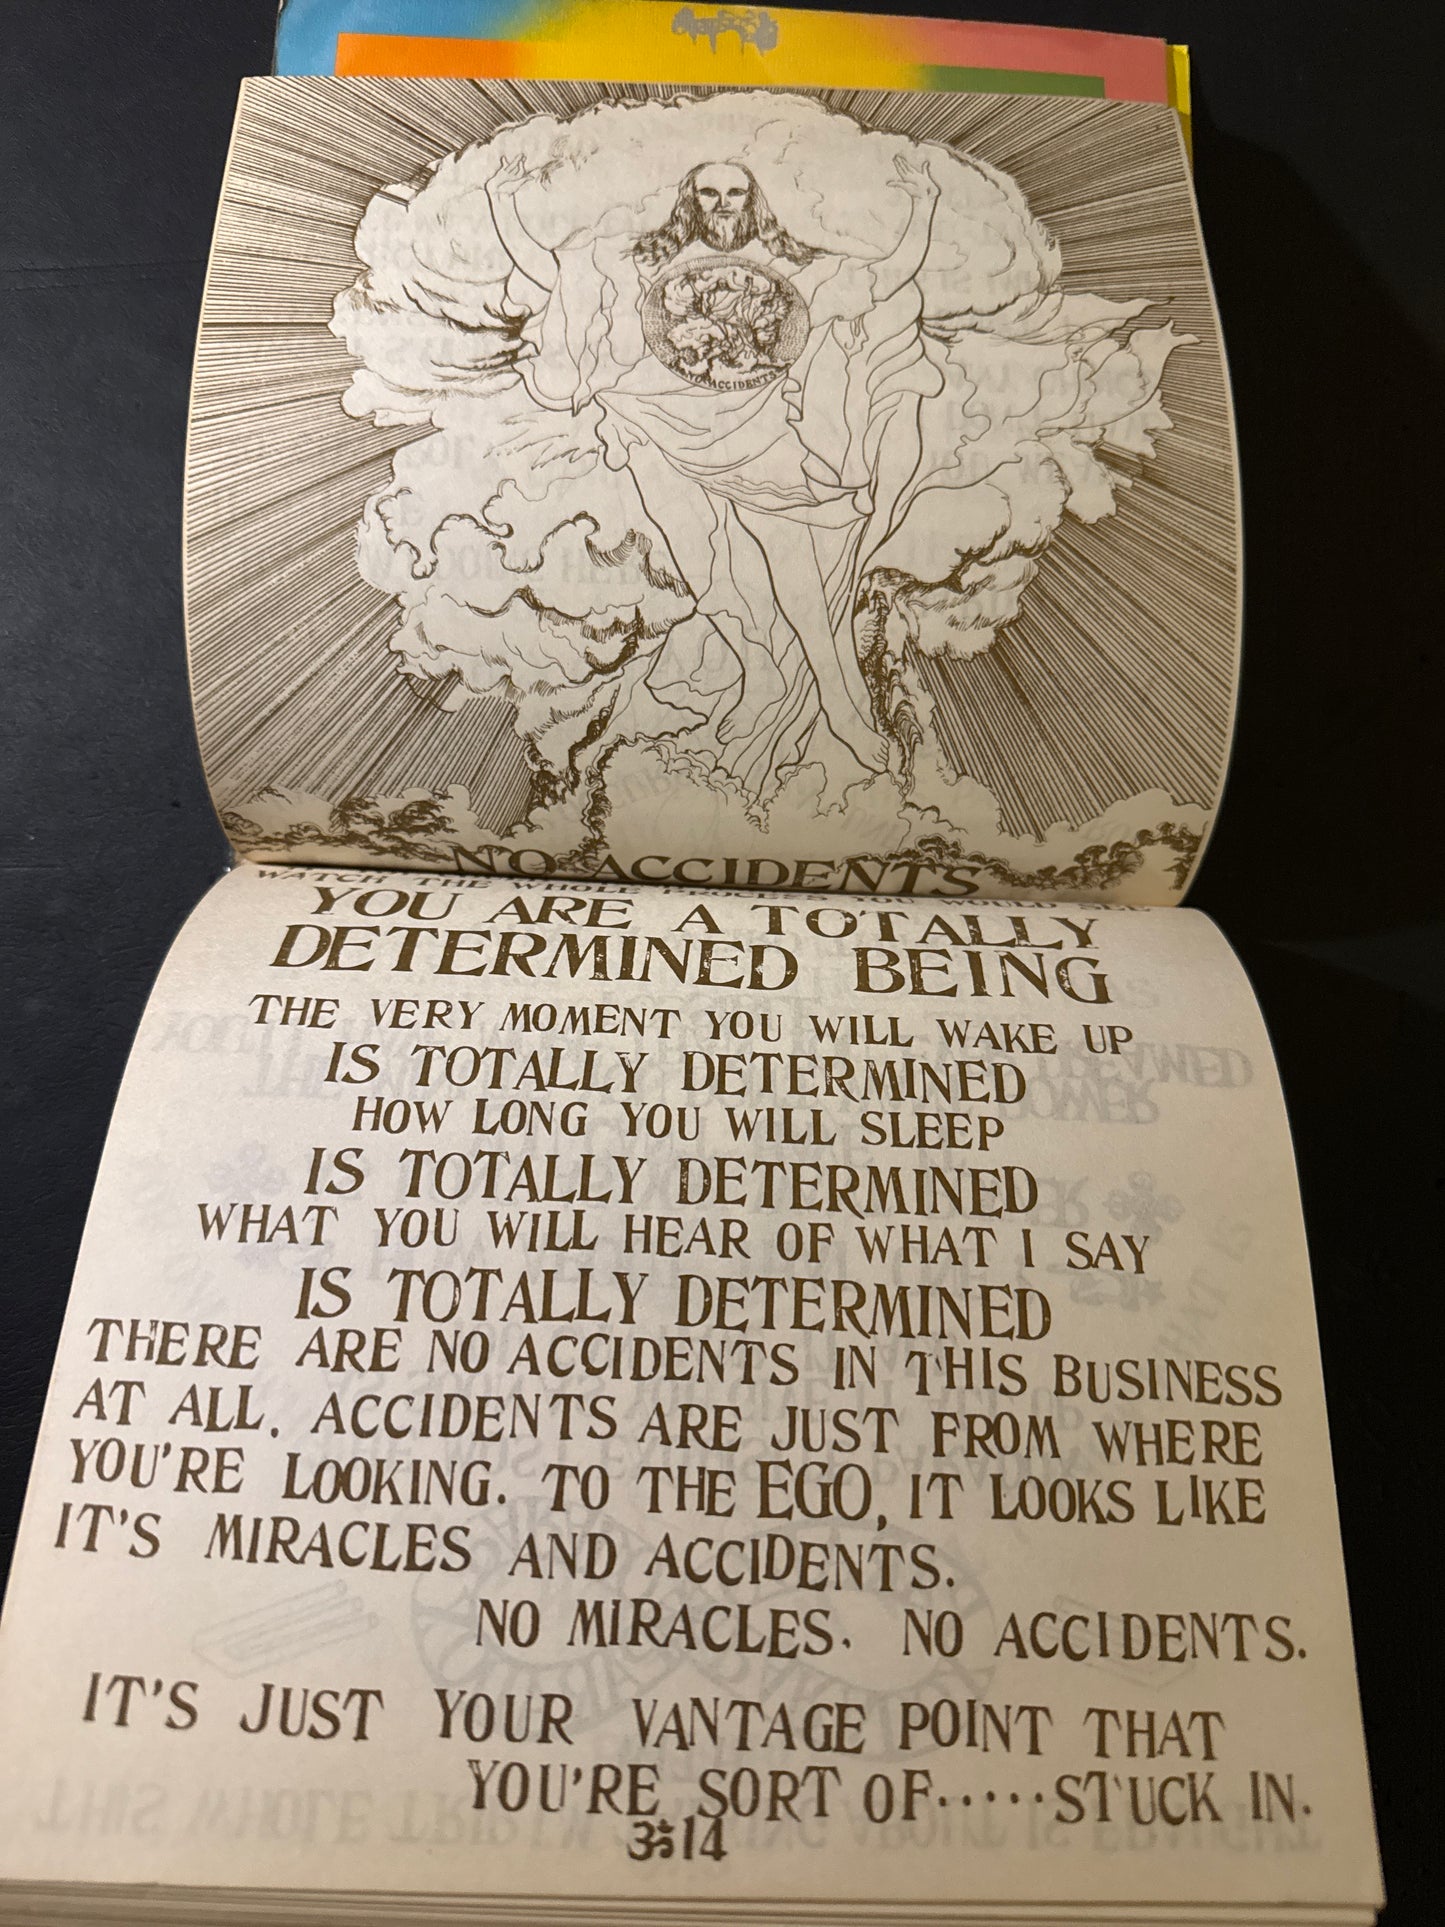 NO ACCIDENTS
NO ACCIDENTS
WATCH THE WHOLE PROCESS YOU WOULD SEE
YOU ARE A TOTALLY
DETERMINED BEING
THE VERY MOMENT YOU WILL WAKE UP
IS TOTALLY DETERMINED
HOW LONG YOU WILL SLEEP
IS TOTALLY DETERMINED
WHAT YOU WILL HEAR OF WHAT I SAY
IS TOTALLY DETERMINED
THERE ARE NO ACCIDENTS IN THIS BUSINESS
AT ALL. ACCIDENTS ARE JUST FROM WHERE
YOU'RE LOOKING. TO THE EGO, IT LOOKS LIKE
IT'S MIRACLES AND ACCIDENTS.
NO MIRACLES. NO ACCIDENTS.
IT'S JUST YOUR VANTAGE POINT THAT
YOU'RE SORT OF.....STUCK IN.
3ॐ14